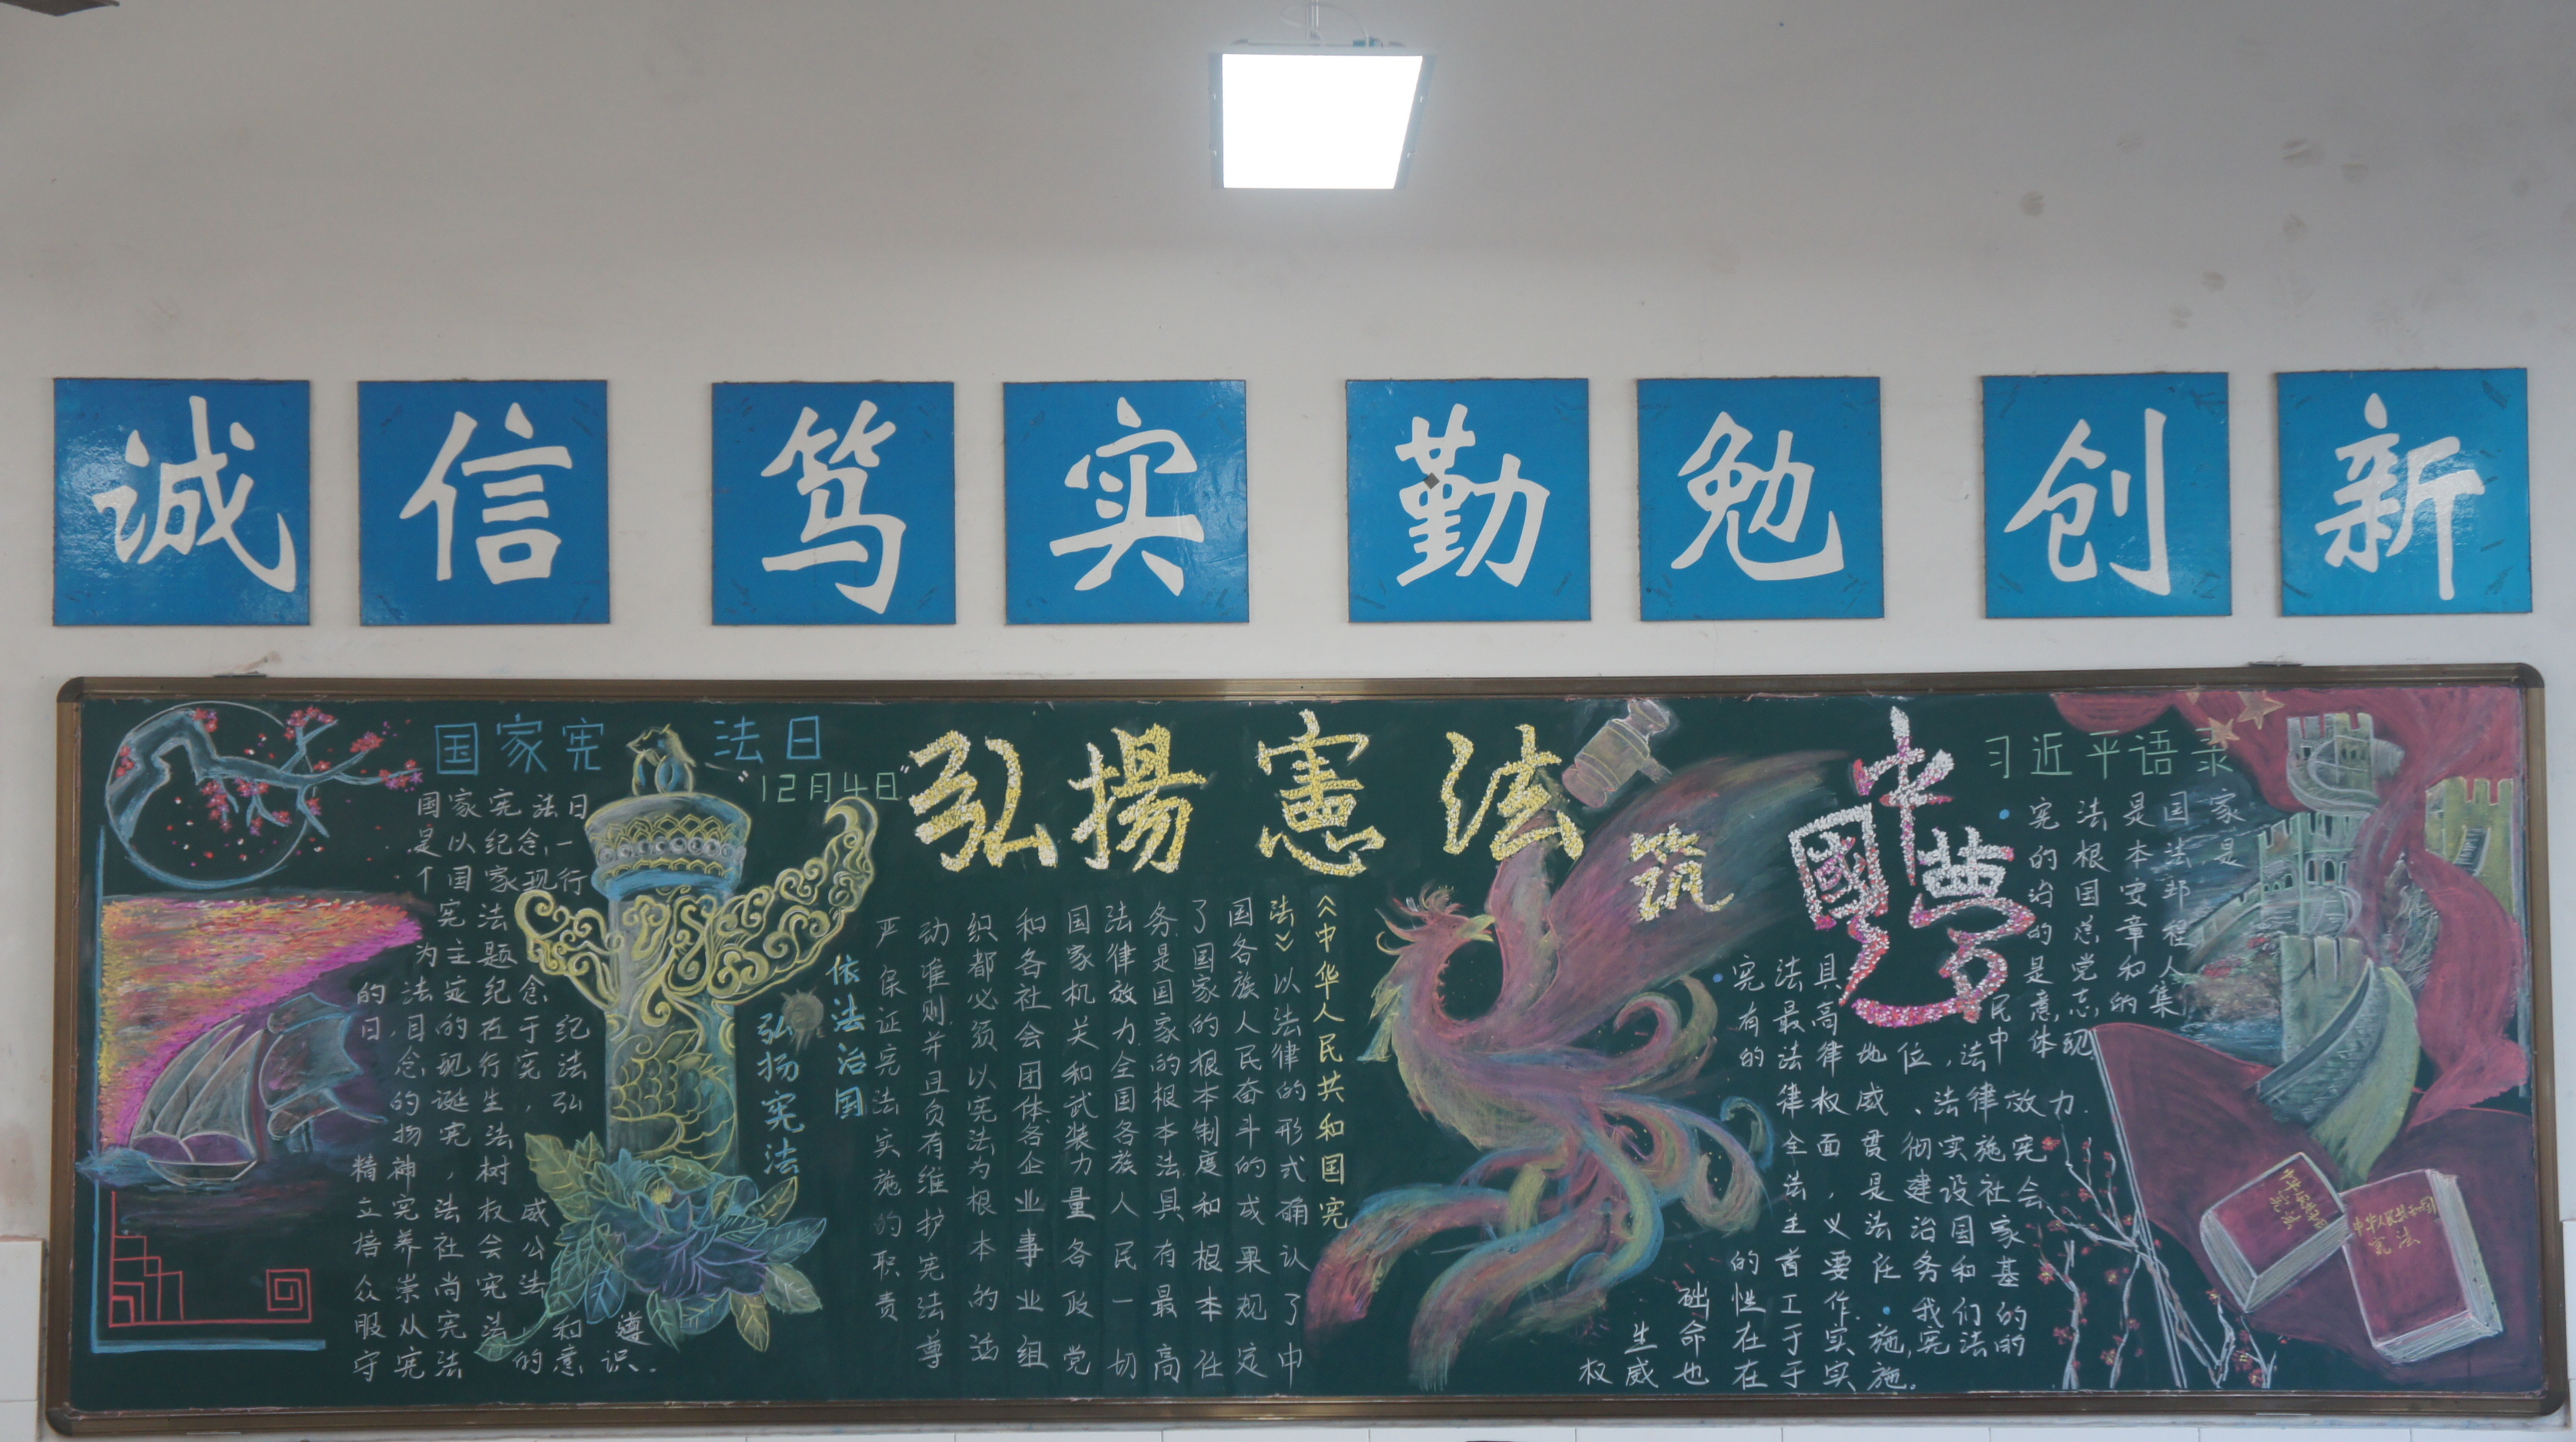 诚信笃实勤勉创新
国家宪法日
"12月4日"
弘揚憲法
筑
中國夢
习近平语录
国家宪法日
是以纪念一
个国家现行
宪法
为主题
的法定纪念
日,目的在于纪
念现行宪法
的诞生,弘
扬宪法
精神,树
立宪法权威
培养社会公
众崇尚宪法
服从宪法和遵
守宪法的意识.
依法治国
弘扬宪法
《中华人民共和国宪
法》以法律的形式确认了中
国各族人民奋斗的成果规定
了国家的根本制度和根本任
务是国家的根本法具有最高
法律效力.全国各族人民一切
国家机关和武装力量各政党
和各社会团体各企业事业组
织都必须以宪法为根本的活
动准则并且负有维护宪法尊
严保证宪法实施的职责
宪法是国家
的根本法是
治国安邦
的总章程
是党和人
民意志的集
中体现
宪法具
有最高
的法律地位,法
律权威、法律效力.
全面贯彻实施宪
法,是建设社会
主义法治国家
的首要任务和基
础性工作.我们的
生命在于实施,宪法的
权威也在于实施.
中华人民共和国
宪法